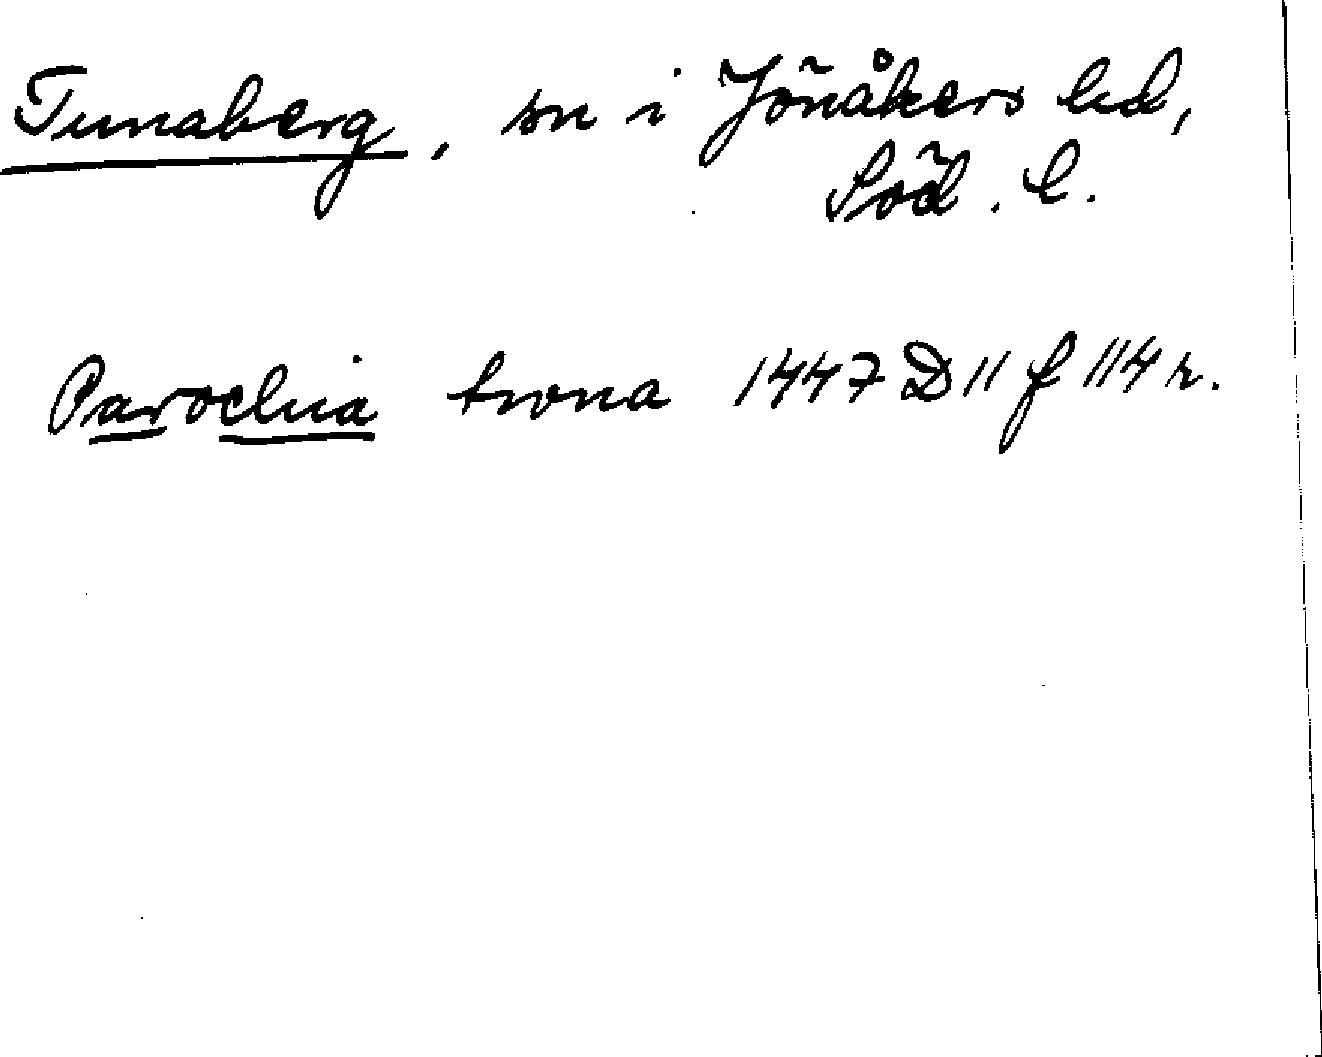 Tunaberg, sn i Jönåkers hd,
Söd. l.
Parochia twna 1447 D 11 f 114 r.